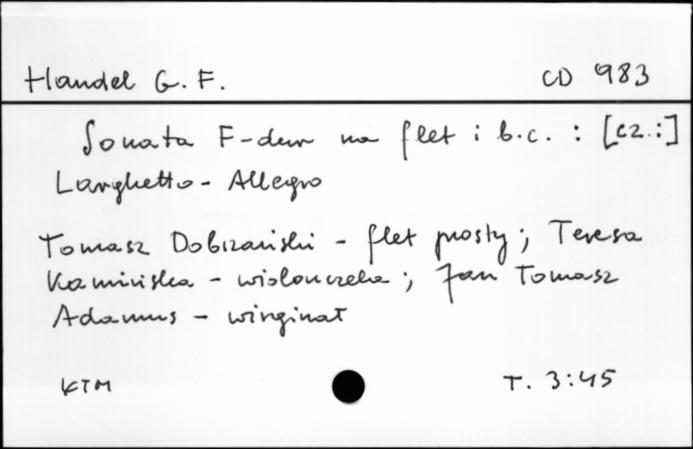 Handel G. F. CD 983
Sonata F-dur na flet i b.c. : [cz.:]
Larghetto - Allegro
Tomasz Dobrzański - flet prosty ; Teresa
Kamińska - wiolonczela ; Jan Tomasz
Adamus - wirginał
KTM T. 3:45